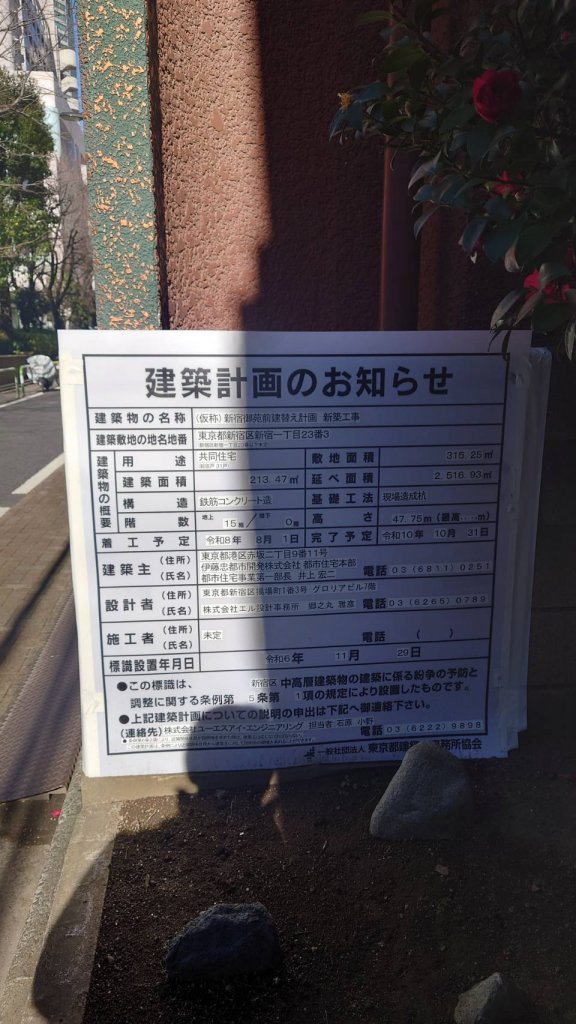 建築計画のお知らせ
建築物の名称 (仮称)新宿御苑前建替え計画 新築工事
建築敷地の地名地番 東京都新宿区新宿一丁目23番3
建築物の概要
用途 共同住宅 敷地面積 315.25㎡
建築面積 213.47㎡ 延べ面積 2,516.93㎡
構造 鉄筋コンクリート造 基礎工法 現場造成杭
階数 地上 15階/地下 0階 高さ 47.75m(最高
着工予定 令和8年 8月 1日 完了予定 令和10年 10月 31日
建築主 (住所) 東京都港区赤坂二丁目9番11号
(氏名) 伊藤忠都市開発株式会社 都市住宅本部
都市住宅事業第一部長 井上 宏二 電話 03(6811)0251
設計者 (住所) 東京都新宿区揚場町1番3号 グロリアビル7階
(氏名) 株式会社エル設計事務所 郷之丸 雅彦 電話 03(6265)0789
施工者 (住所) 未定
(氏名) 電話 ( )
標識設置年月日 令和6年 11月 29日
●この標識は、 新宿区 中高層建築物の建築に係る紛争の予防と
調整に関する条例第 5条第 1項の規定により設置したものです。
●上記建築計画についての説明の申出は下記へ御連絡下さい。
(連絡先) 株式会社ユーエスアイ・エンジニアリング 担当者:石原 小野 電話 03(6222)9898
一般社団法人 東京都建築 務所協会